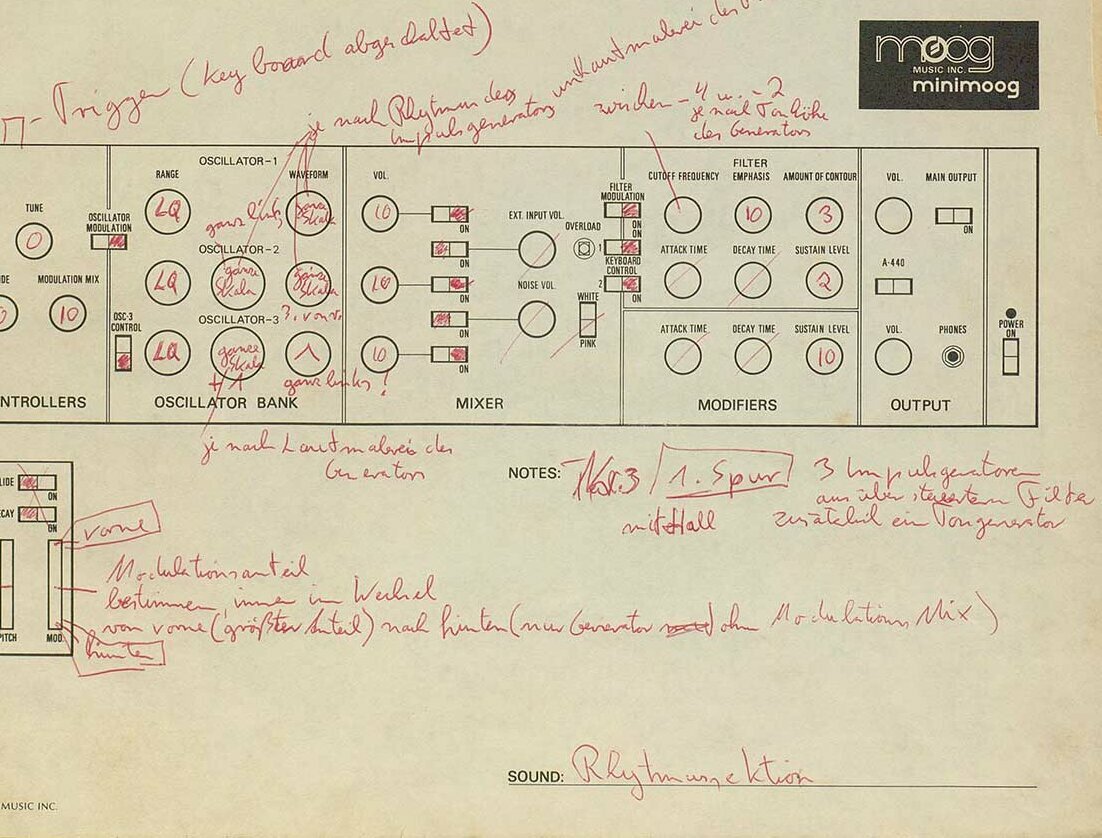 moog
MUSIC INC.
minimoog
Trigger (Keyboard abgeschaltet)
je nach Rhytmus des
Impulsgenerators
zwischen -4 u. -2
je nach Tonhöhe
des Generators
OSCILLATOR-1
RANGE
WAVEFORM
TUNE
OSCILLATOR
MODULATION
ON
LO
ganz links
ganze
Skala
0
OSCILLATOR-2
LO
ganze
Skala
ganze
Skala
MODULATION MIX
10
OSC-3
CONTROL
ON
OSCILLATOR-3
? vorne
LO
ganze
Skala
ganz links!
NTROLLERS
OSCILLATOR BANK
VOL.
10
ON
ON
10
ON
ON
10
ON
EXT. INPUT VOL.
OVERLOAD
NOISE VOL.
WHITE
PINK
MIXER
FILTER
MODULATION
ON
ON
1
KEYBOARD
CONTROL
2
ON
FILTER
CUTOFF FREQUENCY
EMPHASIS
AMOUNT OF CONTOUR
10
3
ATTACK TIME
DECAY TIME
SUSTAIN LEVEL
2
ATTACK TIME
DECAY TIME
SUSTAIN LEVEL
10
MODIFIERS
VOL.
MAIN OUTPUT
ON
A-440
VOL.
PHONES
OUTPUT
POWER
ON
je nach Lautmalerei des
Generators
LIDE
ON
ECAY
ON
PITCH
MOD.
vorne
hinten
Modulationsanteil
bestimmen, immer im Wechsel
von vorne (größter Anteil) nach hinten (nur Generator ohne Modulations Mix)
NOTES:
Nr. 3
1. Spur
mit Hall
3 Impulsgeneratoren
aus übersteuertem Filter
zusätzlich ein Tongenerator
SOUND: Rhytmussektion
MUSIC INC.